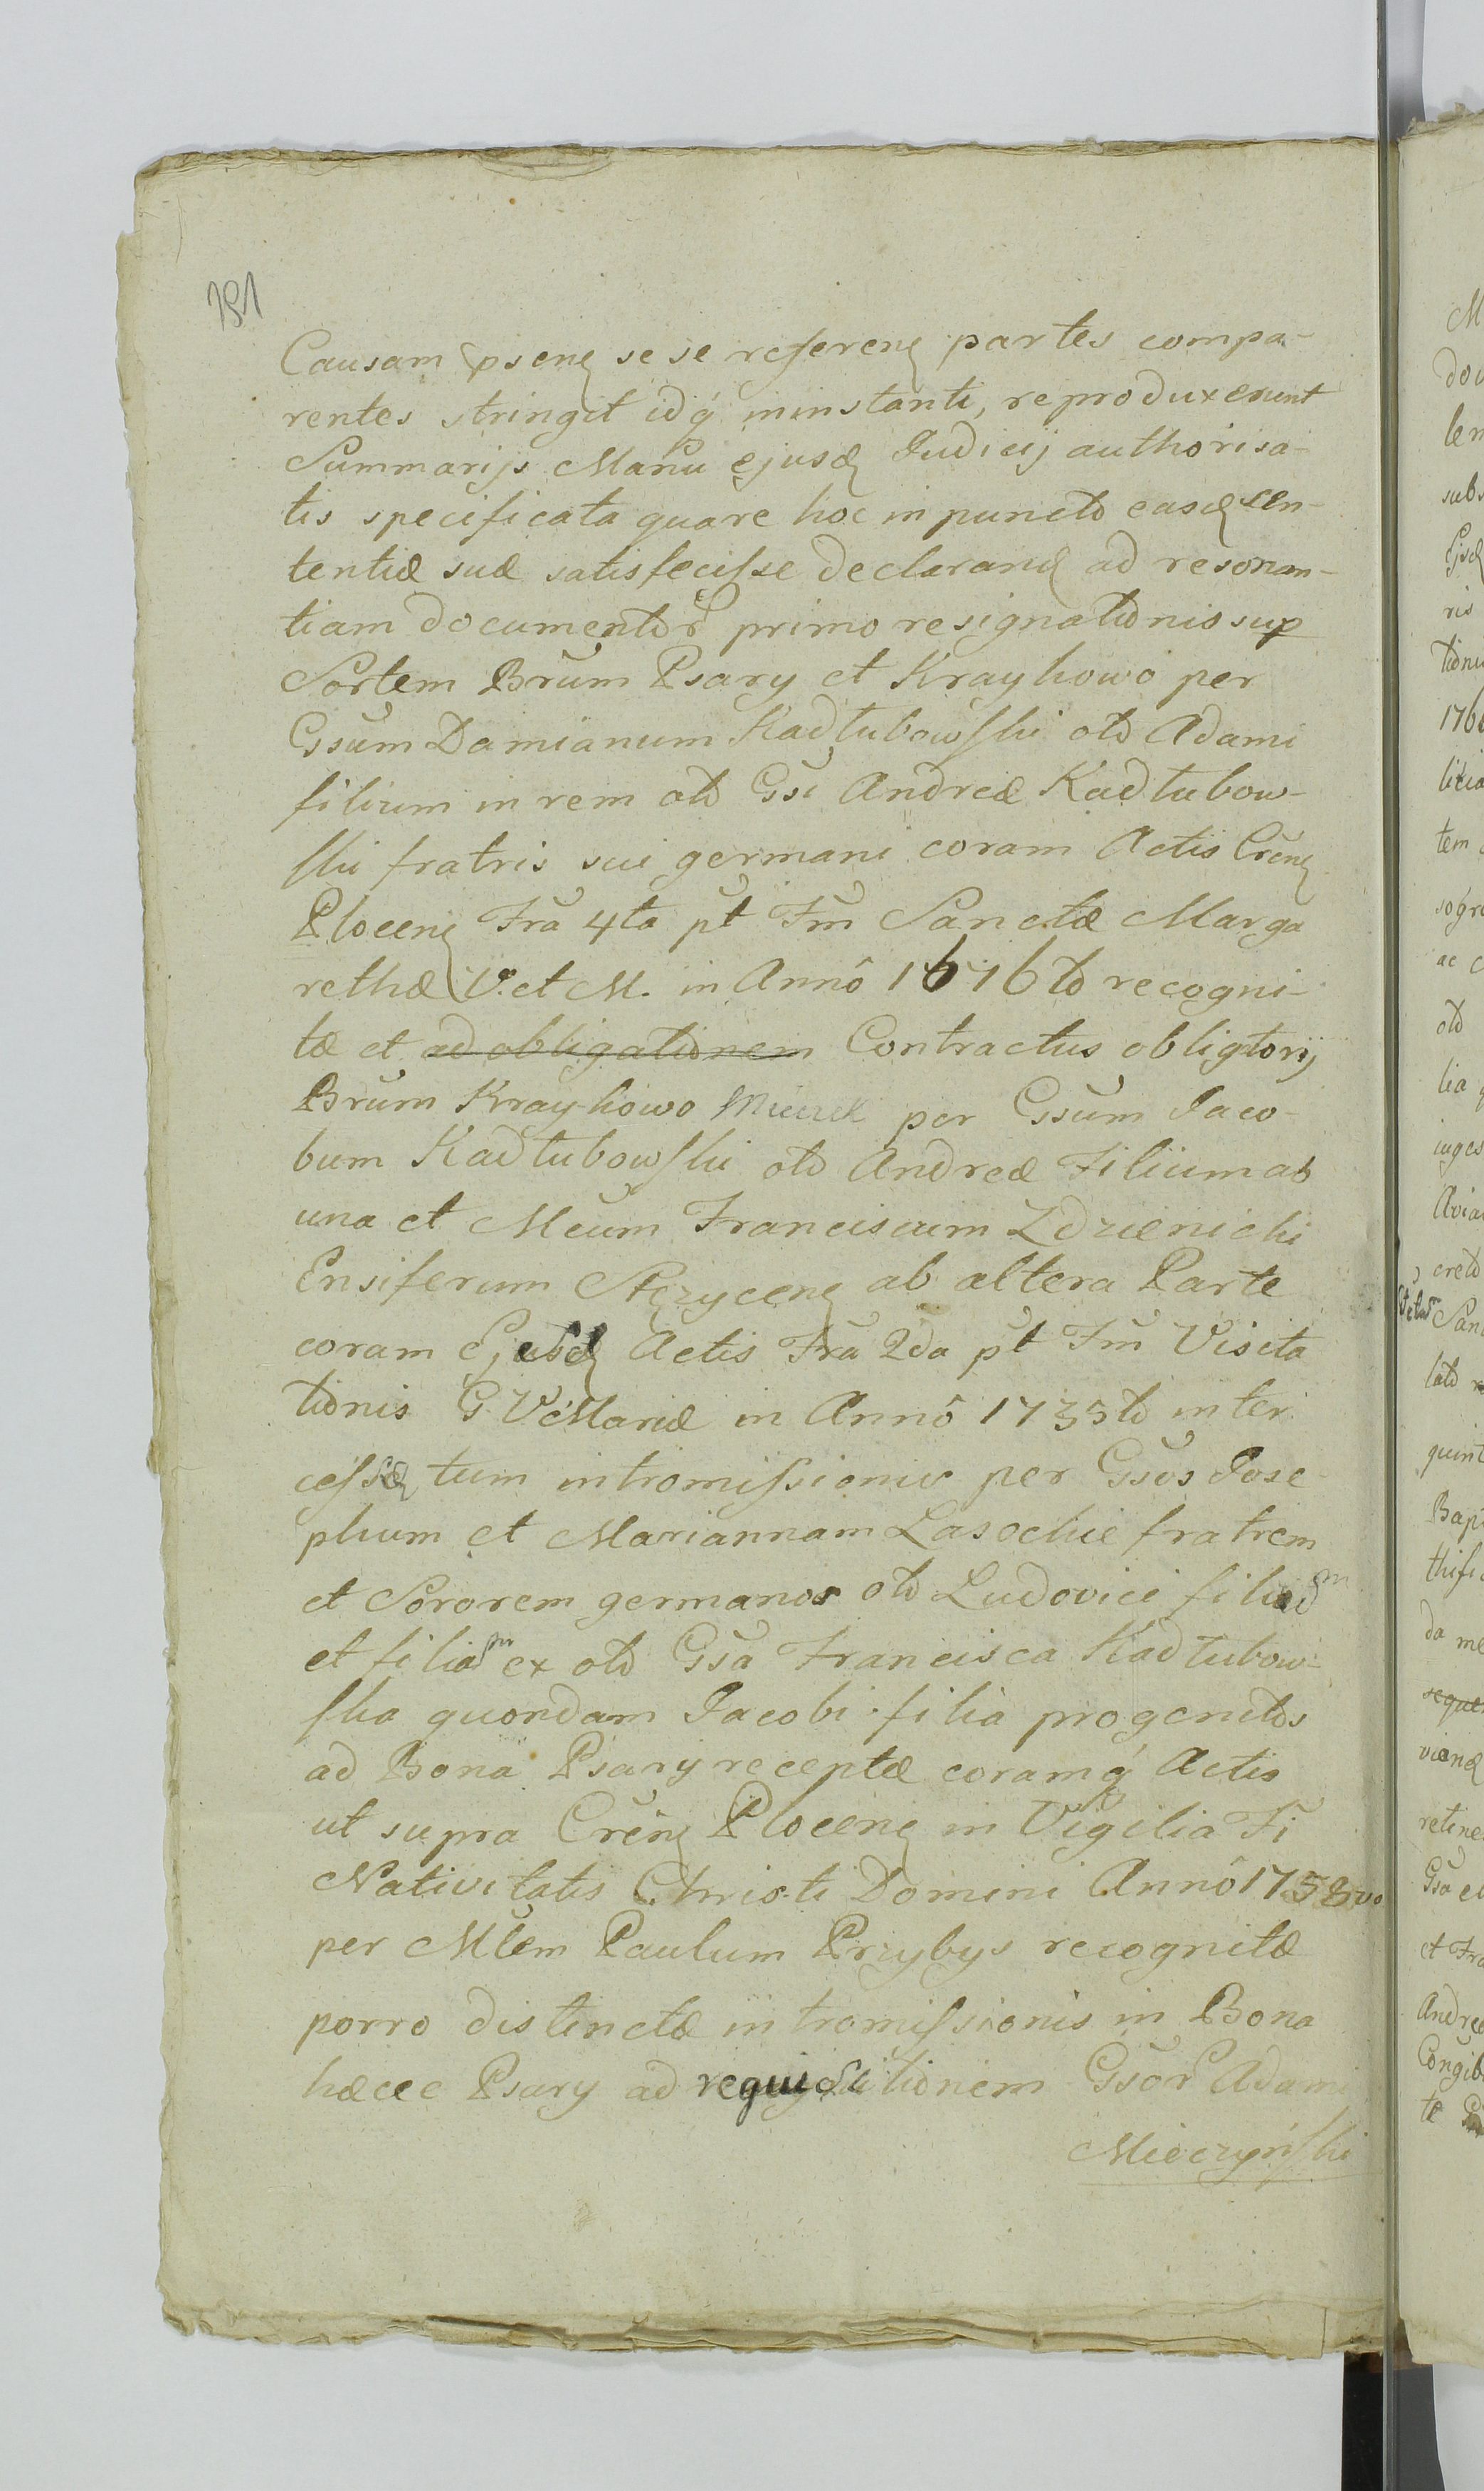 191
Causam psenꝫ se se referenꝫ partes compa-
rentes stringit idq́ ininstanti, reproduxerunt
Summarijs Manu ejusdꝫ Judicij authorisa-
tis specificata quare hoc in puncto easdꝫ sen-
tentiæ suæ satisfecisse declarandꝫ ad resonan-
tiam documentor̃ primo resignationis sup
Sortem Brum̃ Psary et Krayhowo per
Gsum̃ Damianum Kadłubowski olo Adami
filium in rem olo Gsi Andreæ Kadłubow-
ski fratris sui germani coram Actis Cren̄ꝫ
Plocenꝫ Fra 4ta pt̃ Fm̃ Sanctæ Marga
rethæ V. et M. in Annô 1676to recogni-
tæ et ad obligationem Contractus obligtorij
Brum̃ Krayhowo per Gsum̃ Jaco-
bum Kadłubowski olo Andreæ Filium ab
una et Mcum Franciscum Zdzienicki
Ensiferum Stęzycenꝫ ab altera Parte
coram Ejusdꝫ Actis Fra 2da pt̃ Fm̃ Visita
tionis G. V. Mariæ in Annô 1735to inter
cessæ tum intromissionis per Gsos̃ Jose-
phum et Mariannam Lasockie fratrem
et Sororem germanos olo Ludovici filium
et filiam ex olo Gsa Francisca Kadłubow-
ska quondam Jacobi filia progenitos
ad Bona Psary receptæ coramq́ Actis
ut supra Cren̄ꝫ Plocenꝫ in Vigilia Fi
Nativitatis Christi Domini Annô 1758vo
per Mlem̃ Paulum Przybys recognitæ
porro distinctæ intromissionis in Bona
hæcce Psary ad requisitionem Gsor̃ Adami
Mieczyński